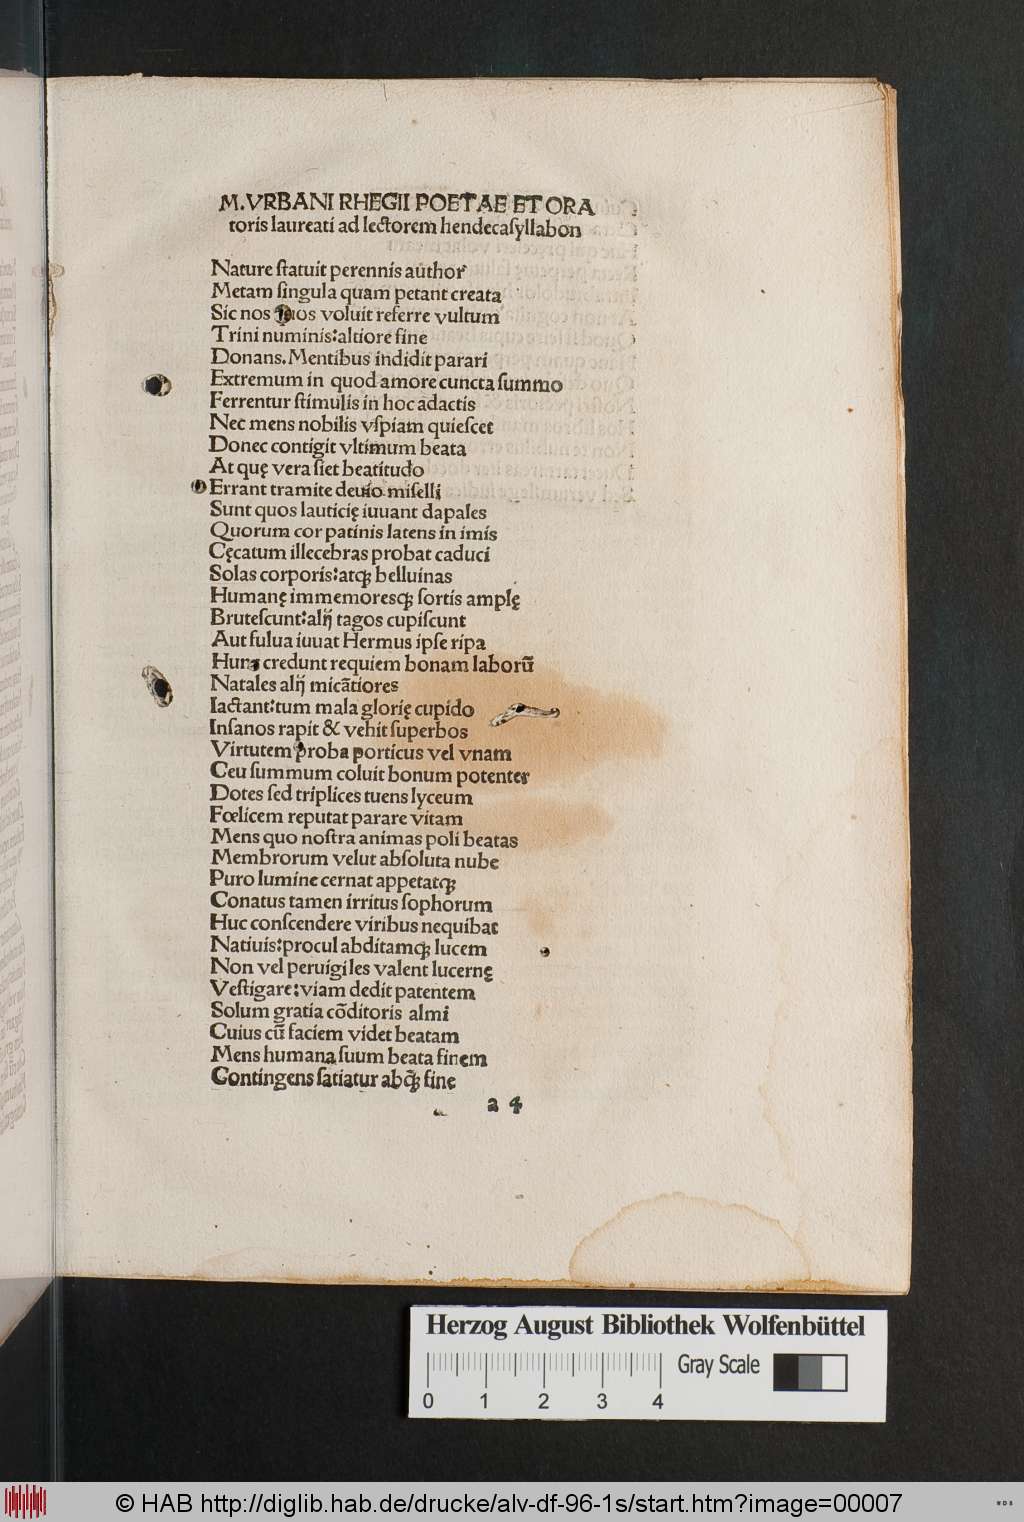 M. VRBANI RHEGII POETAE ET ORA
toris laureati ad lectorem hendecaſyllabon
Nature ſtatuit perennis author
Metam ſingula quam petant creata
Sic nos voluit referre vultum
Trini numinis:altiore fine
Donans. Mentibus indidit parari
Extremum in quod amore cuncta ſummo
Ferrentur ſtimulis in hoc adactis
Nec mens nobilis vſpiam quieſcet
Donec contigit vltimum beata
At quę vera ſiet beatitudo
Errant tramite deuio miſelli
Sunt quos lauticię iuuant dapales
Quorum cor patinis latens in imis
Cęcatum illecebras probat caduci
Solas corporis:atqꝫ belluinas
Humanę immemoresqꝫ ſortis amplę
Bruteſcunt:alij tagos cupiſcunt
Aut fulua iuuat Hermus ipſe ripa
Hunc credunt requiem bonam laborũ
Natales alij micãtiores
Iactant:tum mala glorię cupido
Inſanos rapit & vehit ſuperbos
Virtutem proba porticus vel vnam
Ceu ſummum coluit bonum potenter
Dotes ſed triplices tuens lyceum
Fœlicem reputat parare vitam
Mens quo noſtra animas poli beatas
Membrorum velut abſoluta nube
Puro lumine cernat appetatqꝫ
Conatus tamen irritus ſophorum
Huc conſcendere viribus nequibat
Natiuis:procul abditamqꝫ lucem
Non vel peruigiles valent lucernę
Veſtigare:viam dedit patentem
Solum gratia cõditoris almi
Cuius cũ faciem videt beatam
Mens humana ſuum beata finem
Contingens ſatiatur abqꝫ̃ fine
a 4
Herzog August Bibliothek Wolfenbüttel
Gray Scale
0 1 2 3 4
© HAB http://diglib.hab.de/drucke/alv-df-96-1s/start.htm?image=00007